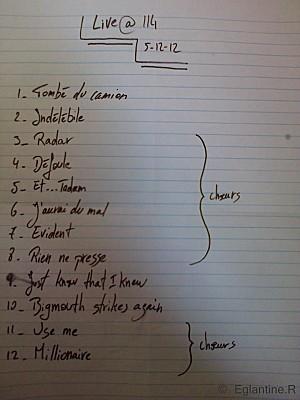 Live @ 114
5-12-12
1_ Tombé du camion
2_ Indélébile
3_ Radar
4_ Défoule
5_ Et...Tadam
6_ J'aurai du mal
7_ Evident
8_ Rien ne presse
chœurs
9_ Just know that I knew
10_ Bigmouth strikes again
11_ Use me
12_ Millionaire
chœurs
© Eglantine.R